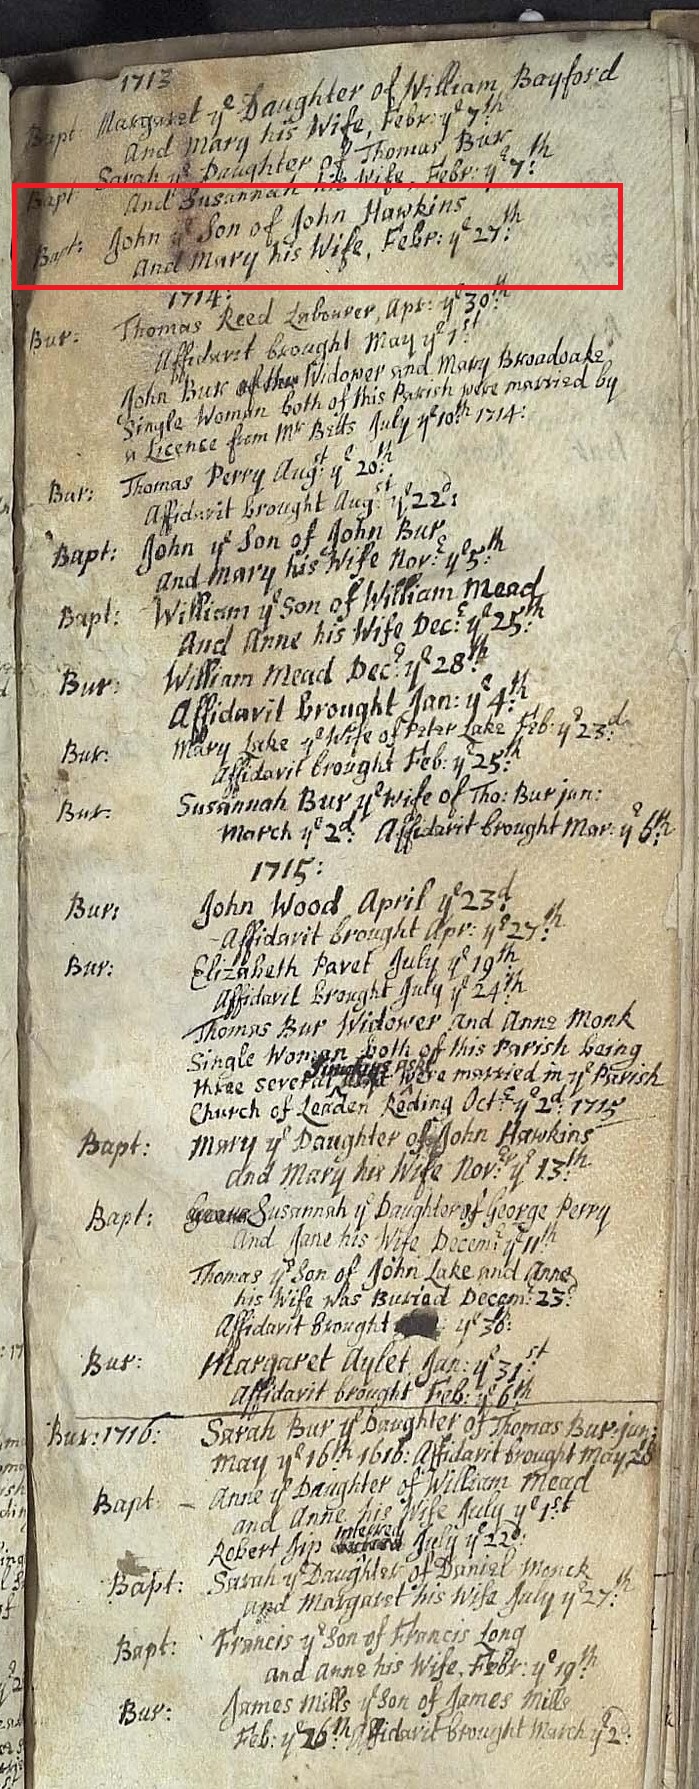 1713
Bapt: Margaret yͤ Daughter of William Bayford
And Mary his Wife, Febr: yͤ 7th
Bapt: Sarah yͤ Daughter of Thomas Bur
And Susannah his Wife, Febr: yͤ 7:th
Bapt: John yͤ Son of John Hawkins
And Mary his Wife, Febr: yͤ 27:th
1714:
Bur: Thomas Reed Labourer, Apr: yͤ 30th
Affidavit brought May yͤ 1st
John Bur Widower and Mary Broadoake
Single Woman both of this Parish were married by
a License from Mr Betts July yͤ 10th 1714:
Bur: Thomas Perry Augst: yͤ 20th
Affidavit brought Augst: yͤ 22d:
Bapt: John yͤ Son of John Bur
And Mary his Wife Nov:r yͤ 5:th
Bapt: William yͤ Son of William Mead
And Anne his Wife Dec:r yͤ 25:th
Bur: William Mead Dec:r yͤ 28:th
Affidavit brought Jan: yͤ 4:th
Bur: Mary Lake yͤ Wife of Peter Lake Feb: yͤ 23d
Affidavit brought Feb: yͤ 25:th
Bur: Susannah Bur yͤ Wife of Tho: Bur jun:
March yͤ 2d: Affidavit brought Mar: yͤ 6th
1715:
Bur: John Wood April yͤ 23d
Affidavit brought Apr: yͤ 27:th
Bur: Elizabeth Pavet July yͤ 19th
Affidavit brought July yͤ 24th
Thomas Bur Widower and Anne Monk
Single Woman both of this Parish being
three several were married in yͤ Parish
Church of Leaden Roding Oct:r yͤ 2d: 1715
Bapt: Mary yͤ Daughter of John Hawkins
and Mary his Wife Nov:r yͤ 13:th
Bapt: Susannah yͤ Daughter of George Perry
And Jane his Wife Decem:r yͤ 11th
Thomas yͤ Son of John Lake and Anne
his Wife was Buried Decem:r 23d
Affidavit brought yͤ 30:
Bur: Margaret Aylet Jan: yͤ 31st
Affidavit brought Feb: yͤ 6th
Bur: 1716: Sarah Bur yͤ Daughter of Thomas Bur jun:
May yͤ 16th 1616: Affidavit brought May 28
Bapt - Anne yͤ Daughter of William Mead
and Anne his Wife July yͤ 1st
Robert Jip interred July yͤ 22d:
Bapt: Sarah yͤ Daughter of Daniel Monck
and Margaret his Wife July yͤ 27:th
Bapt: Francis yͤ Son of Francis Long
and Anne his Wife, Febr: yͤ 19th
Bur: James Mills yͤ Son of James Mills
Feb: yͤ 26th Affidavit brought March yͤ 2d: